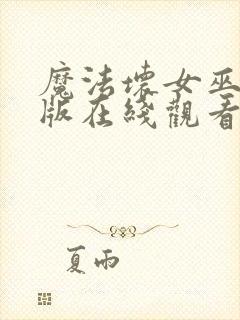 魔法壞女巫
版在綫觀看
夏雨